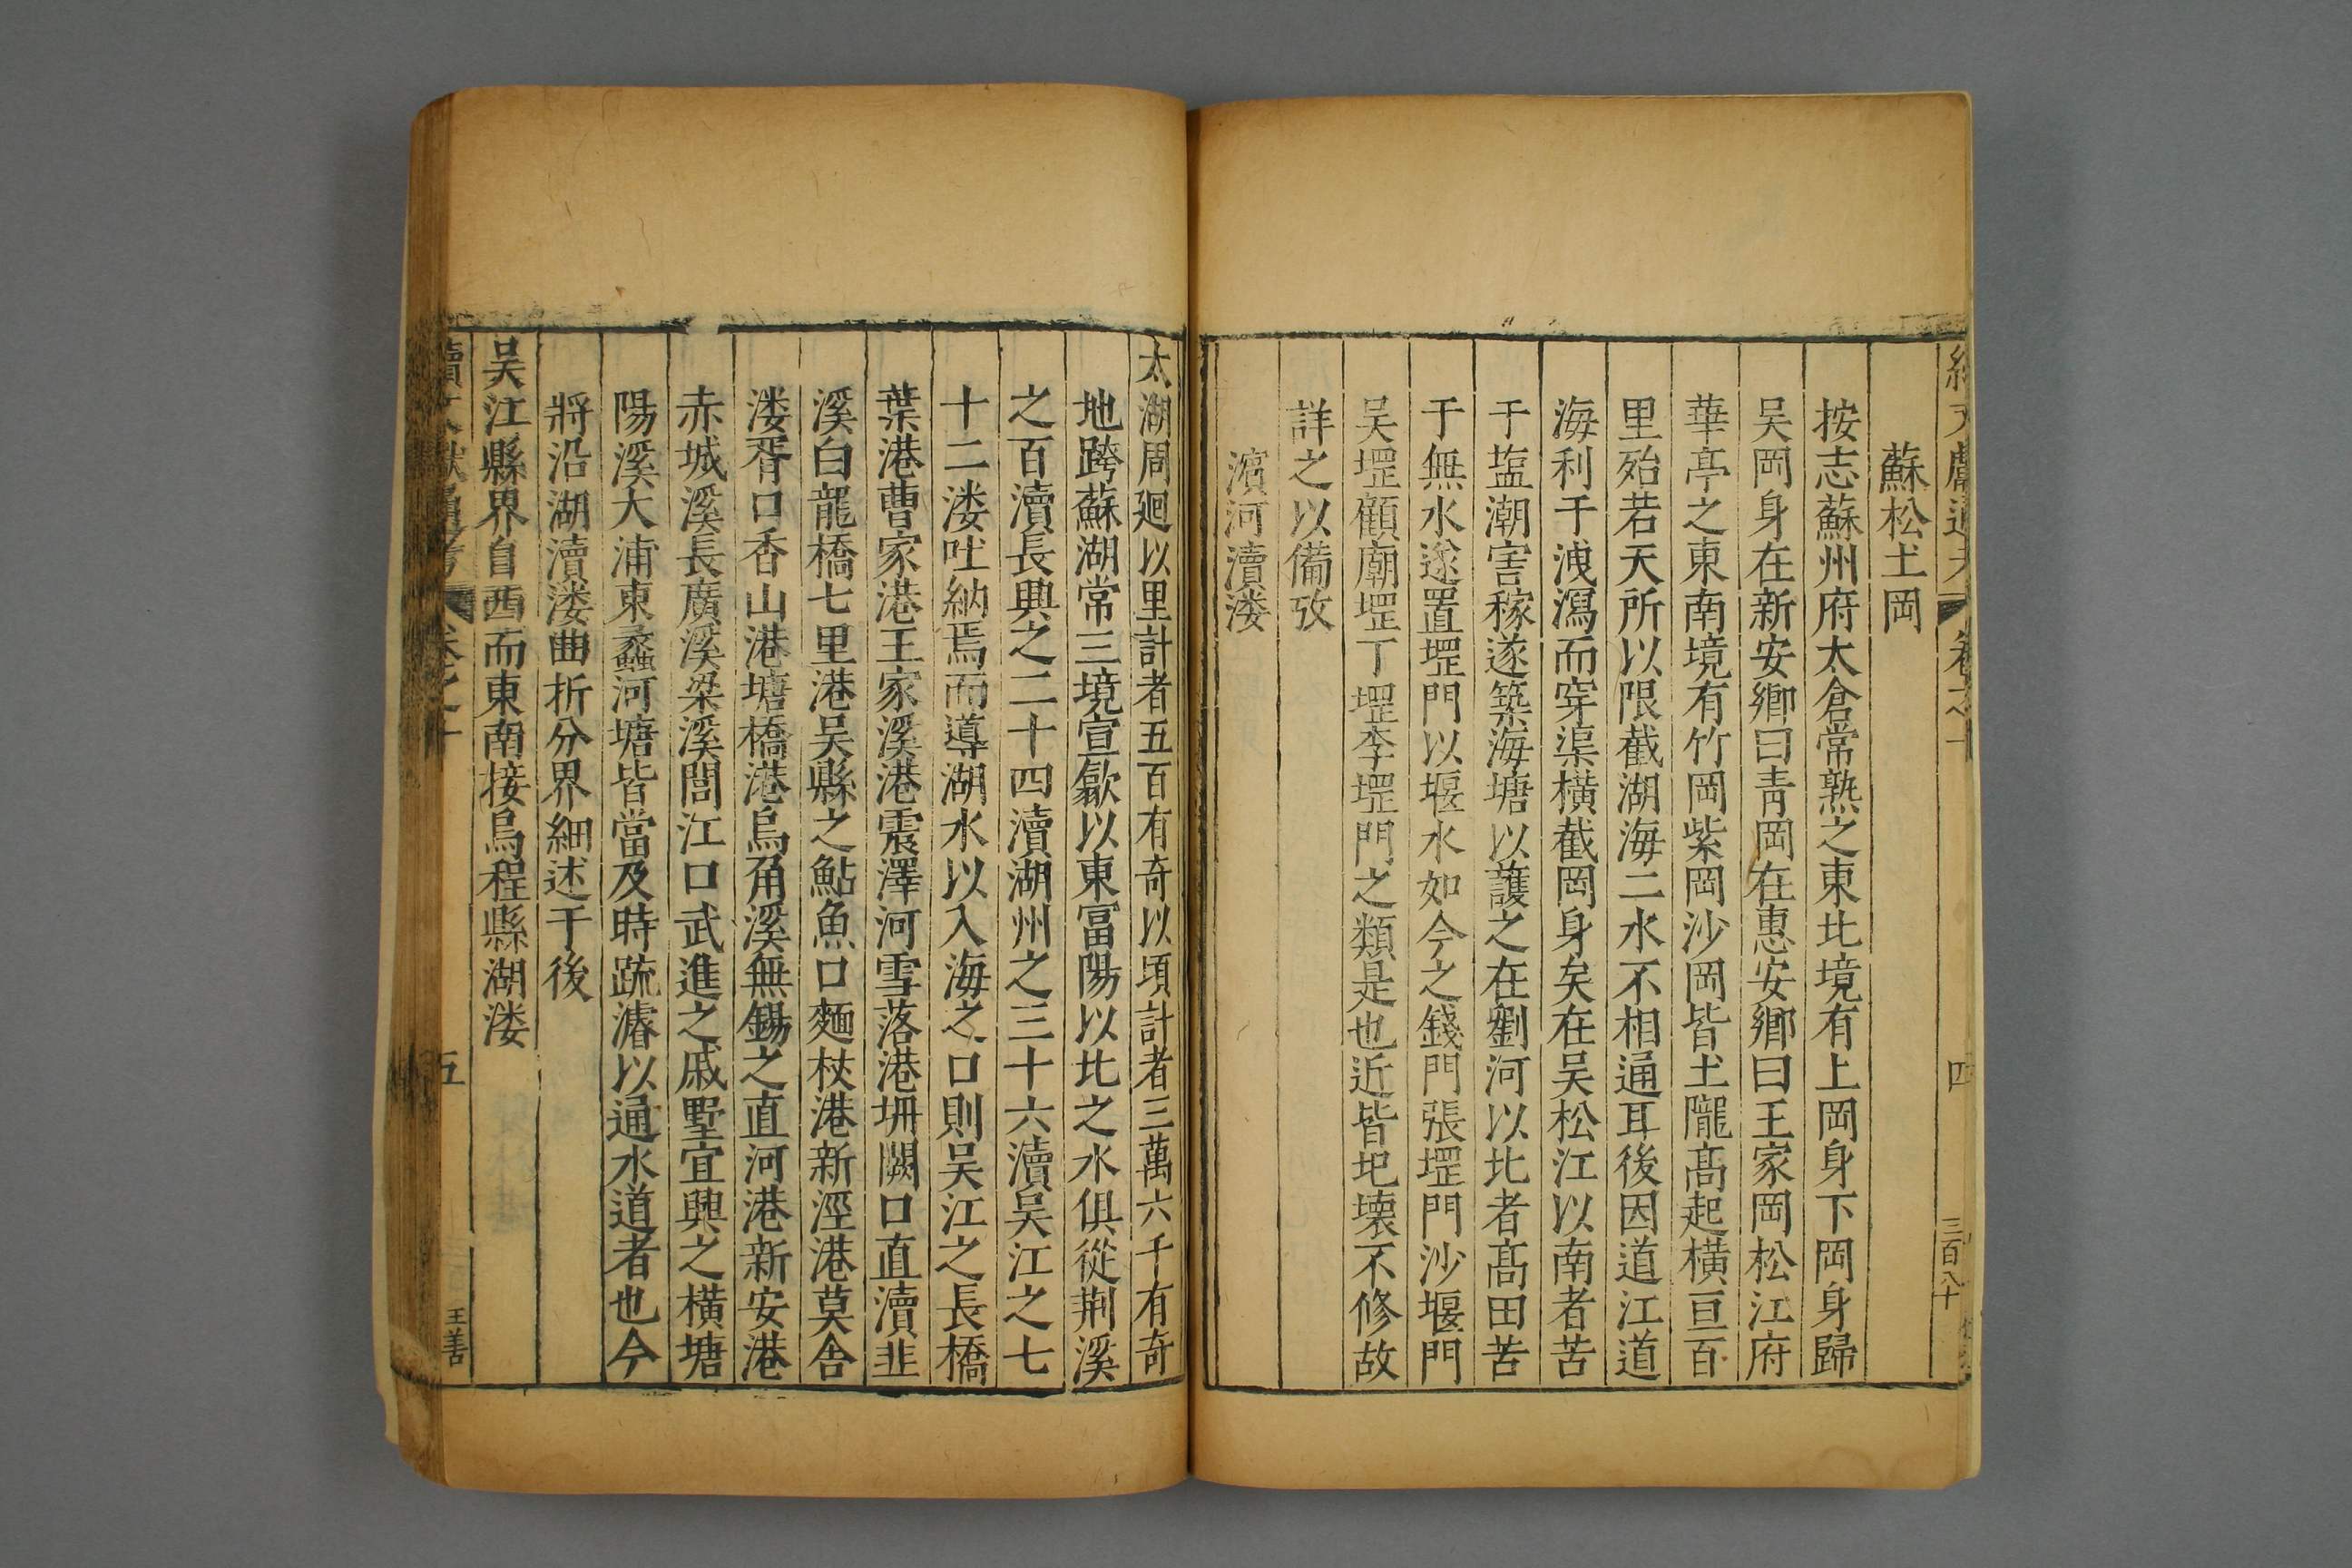 蘇松土岡
按志蘇州府太倉常熟之東北境有上岡身下岡身歸
吴岡身在新安鄉曰青岡在惠安鄉曰王家岡松江府
華亭之東南境有竹岡紫岡沙岡皆土隴髙起橫亘百
里殆若天所以限截湖海二水不相通耳後因道江道
海利于洩瀉而穿渠橫截岡身矣在吴松江以南者苦
于塩潮害稼遂築海塘以護之在劉河以北者髙田苦
于無水遂置堽門以堰水如今之錢門張堽門沙堰門
吴堽顧廟堽丁堽李堽門之類是也近皆圯壞不修故
詳之以備攷
濵河瀆溇
太湖周廻以里計者五百有奇以頃計者三萬六千有奇
地跨蘇湖常三境宣歙以東富陽以北之水俱從荆溪
之百瀆長興之二十四瀆湖州之三十六瀆吴江之七
十二溇吐納焉而導湖水以入海之口則吴江之長橋
葉港曹家港王家溪港震澤河雪落港坍闕口直瀆韭
溪白龍橋七里港吴縣之鮎魚口麵杖港新涇港莫舍
溇胥口香山港塘橋港烏角溪無錫之直河港新安港
赤城溪長廣溪梁溪閭江口武進之戚墅宜興之橫塘
陽溪大浦東蠡河塘皆當及時䟽濬以通水道者也今
將沿湖瀆溇曲折分界細述于後
吴江縣界自西而東南接烏程縣湖溇
續文獻通考 卷之十 五 王善